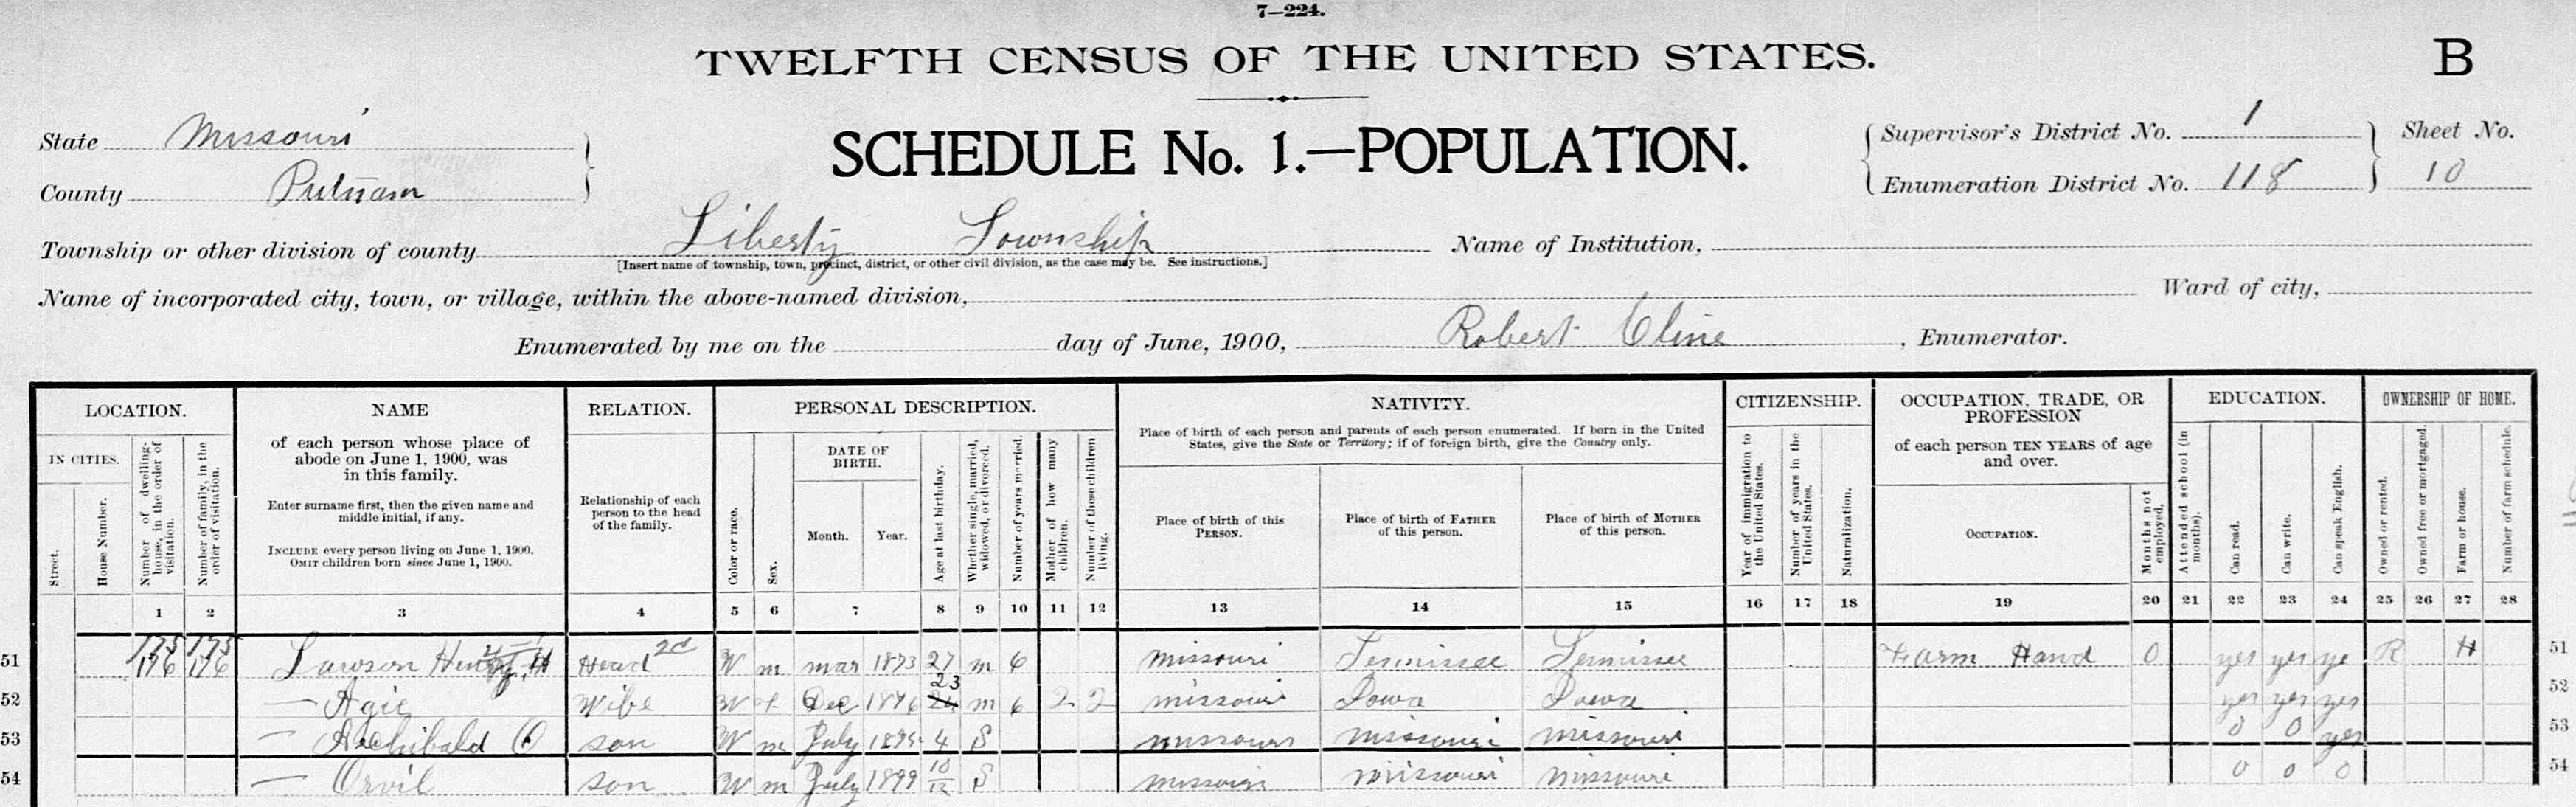 7—224.
TWELFTH CENSUS OF THE UNITED STATES.
B
State Missouri
County Putnam
SCHEDULE No. 1.—POPULATION.
Supervisor's District No. 1
Enumeration District No. 118
Sheet No.
10
Township or other division of county Liberty Township
[Insert name of township, town, precinct, district, or other civil division, as the case may be. See instructions.]
Name of Institution,
Name of incorporated city, town, or village, within the above-named division,
Ward of city,
Enumerated by me on the day of June, 1900, Robert Cline, Enumerator.
LOCATION.
IN CITIES.
Street.
House Number.
Number of dwelling-house, in the order of visitation.
Number of family, in the order of visitation.
NAME
of each person whose place of
abode on June 1, 1900, was
in this family.
Enter surname first, then the given name and
middle initial, if any.
INCLUDE every person living on June 1, 1900.
OMIT children born since June 1, 1900.
RELATION.
Relationship of each
person to the head
of the family.
PERSONAL DESCRIPTION.
Color or race.
Sex.
DATE OF
BIRTH.
Month.
Year.
Age at last birthday.
Whether single, married, widowed, or divorced.
Number of years married.
Mother of how many children.
Number of these children living.
NATIVITY.
Place of birth of each person and parents of each person enumerated. If born in the United
States, give the State or Territory; if of foreign birth, give the Country only.
Place of birth of this
PERSON.
Place of birth of FATHER
of this person.
Place of birth of MOTHER
of this person.
CITIZENSHIP.
Year of immigration to the United States.
Number of years in the United States.
Naturalization.
OCCUPATION, TRADE, OR
PROFESSION
of each person TEN YEARS of age
and over.
OCCUPATION.
Months not employed.
EDUCATION.
Attended school (in months).
Can read.
Can write.
Can speak English.
OWNERSHIP OF HOME.
Owned or rented.
Owned free or mortgaged.
Farm or house.
Number of farm schedule.
1 2 3 4 5 6 7 8 9 10 11 12 13 14 15 16 17 18 19 20 21 22 23 24 25 26 27 28
175 175
51 176 176 Lawson Head 2d W m mar 1873 27 m 6 missouri Tennissee Tennissee Farm Hand 0 yes yes ye R H 51
52 — Agie Wife W f Dec 1876 23 m 6 2 2 missouri Iowa Iowa yes yes yes 52
53 — Archibald O son W m July 1895 4 S missouri missouri missouri 0 0 yes 53
54 — Orvil son W m July 1899 10/12 S missouri missouri missouri 0 0 0 54